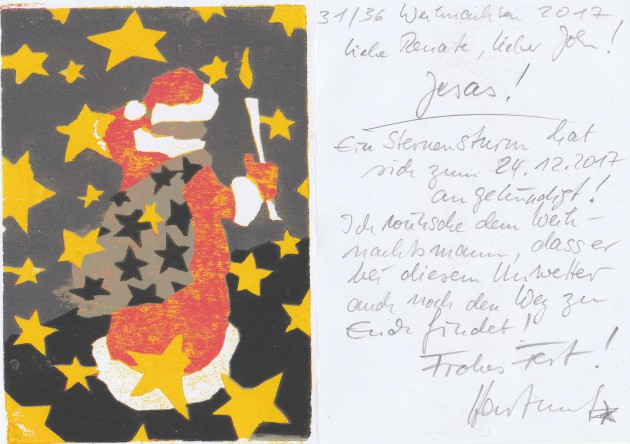 31/36 Weihnachten 2017
liebe Renate, lieber John!
Jesas!
Ein Sternensturm hat
sich zum 24.12.2017
angekündigt!
Ich wünsche dem Weih-
nachtsmann, dass er
bei diesem Unwetter
auch noch den Weg zu
Ende findet!
Frohes Fest!